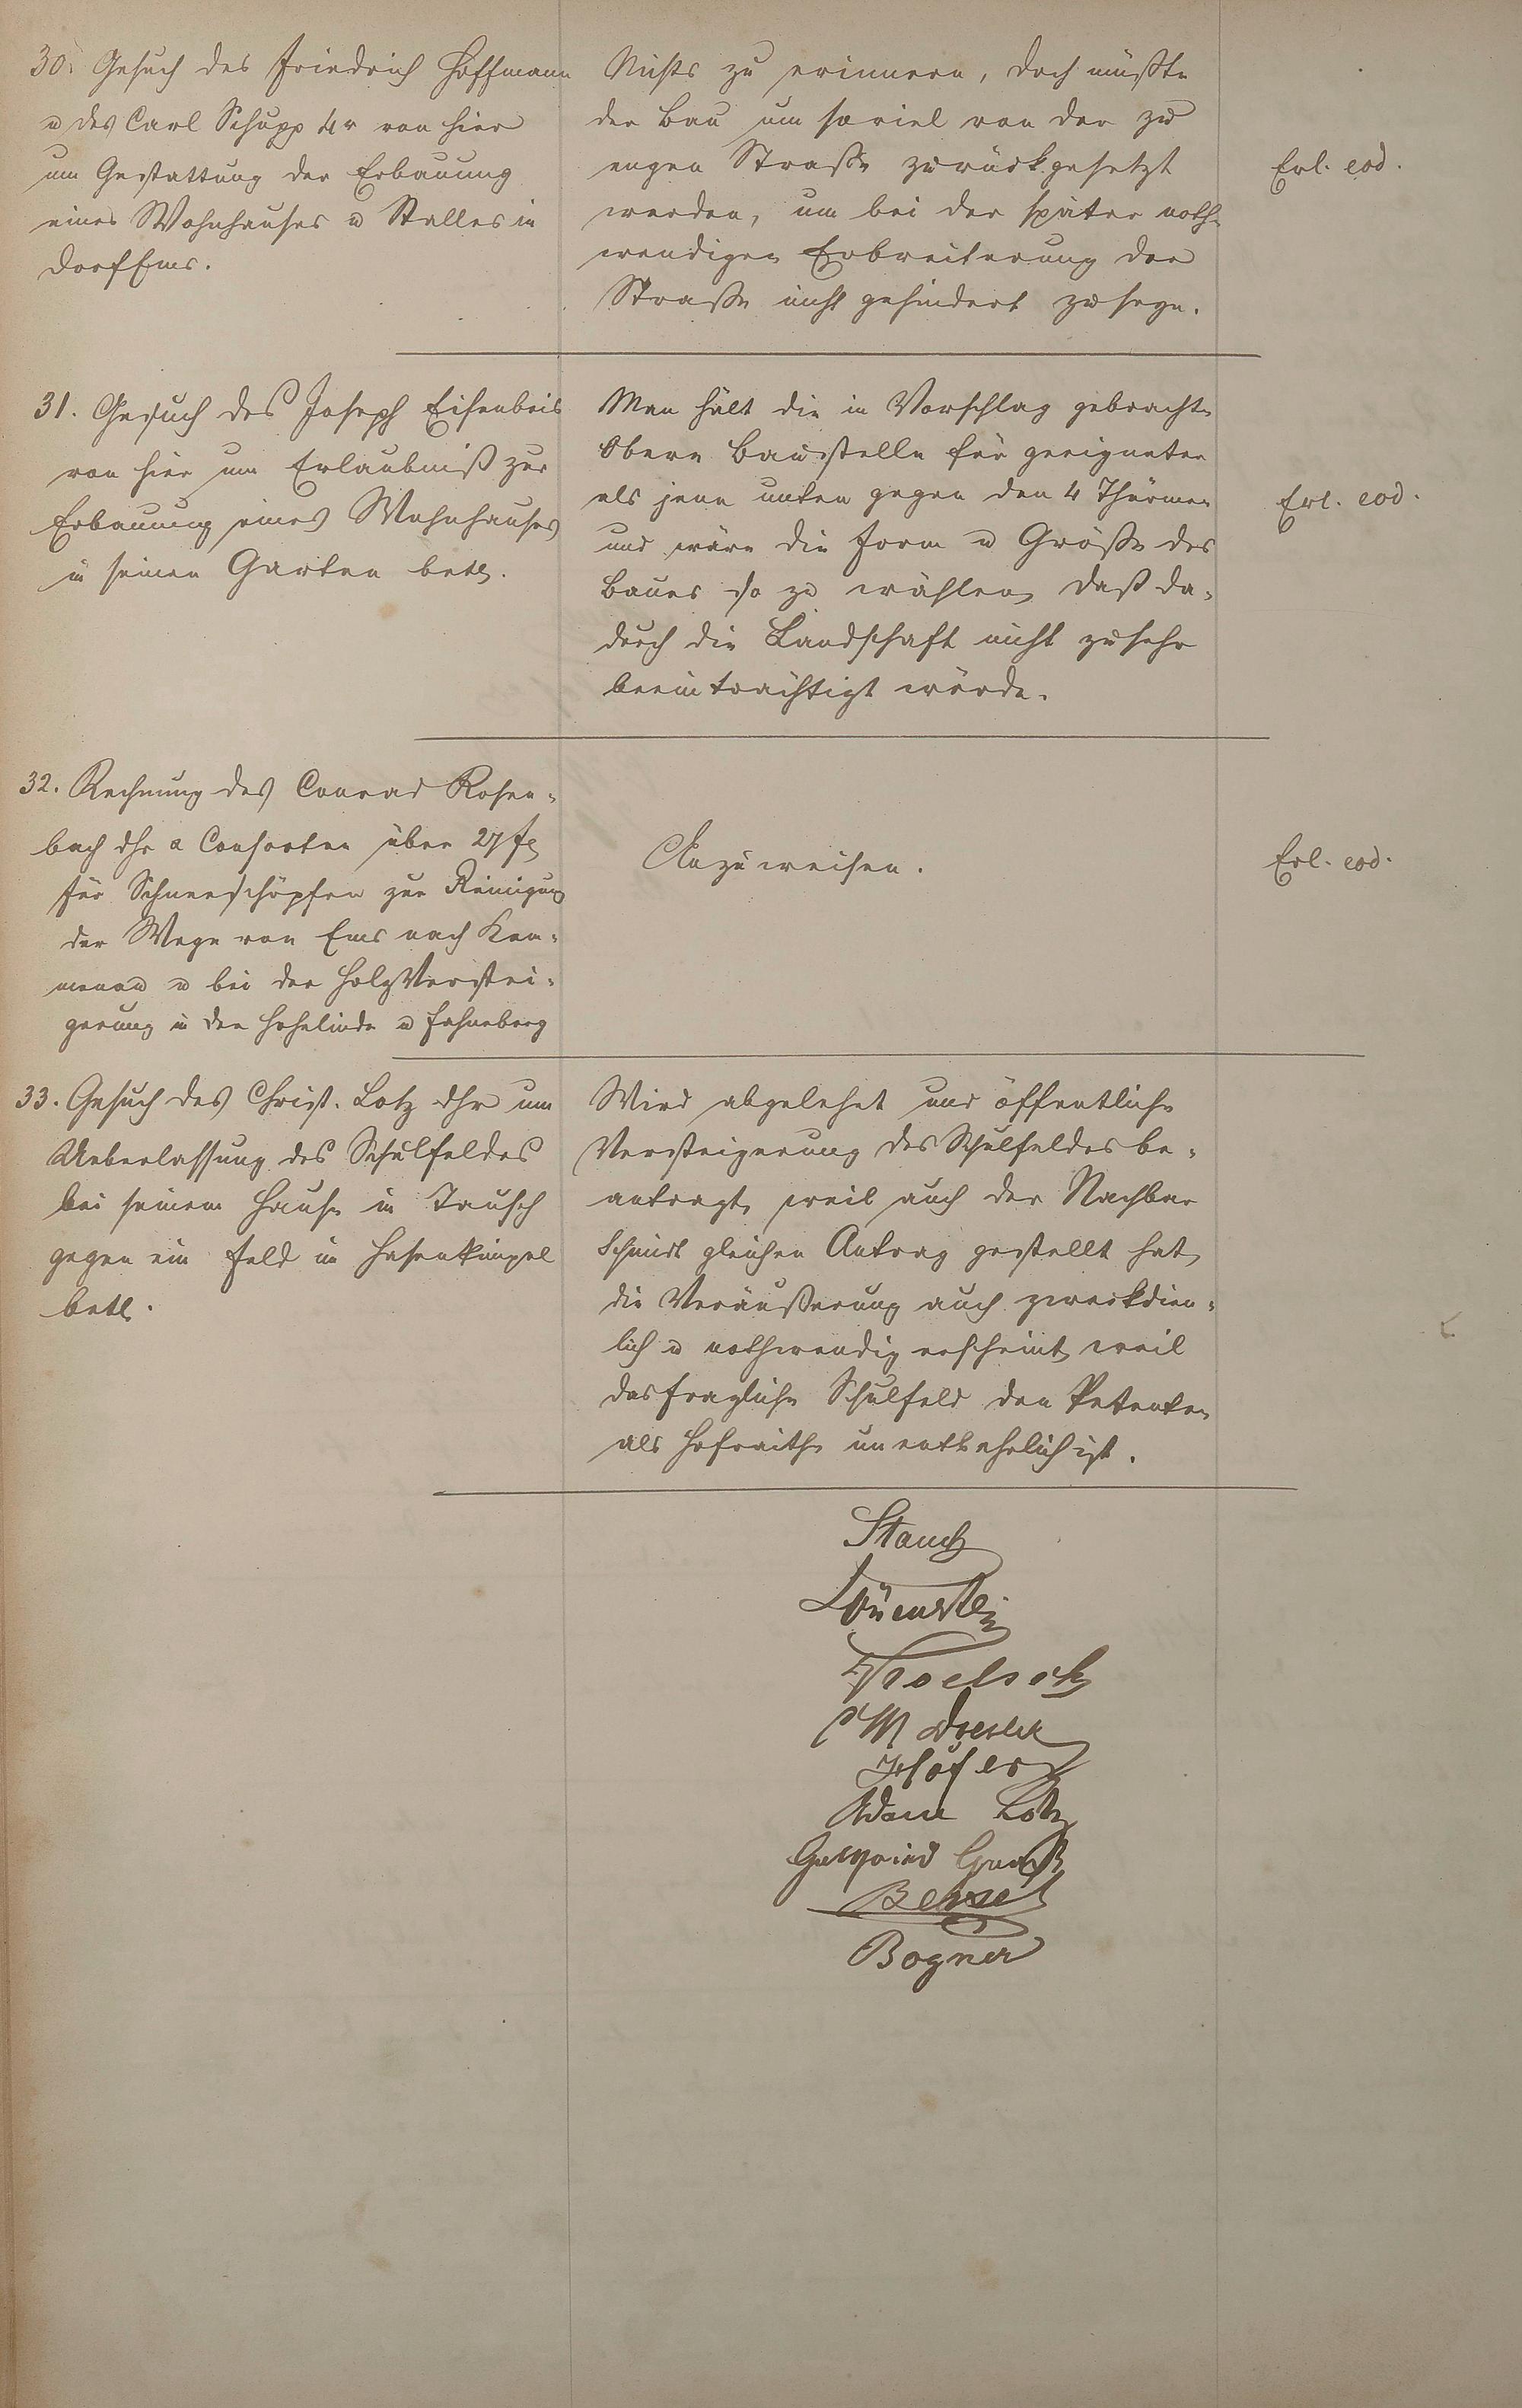 30. Gesuch des Friedrich Hoffmann
u des Carl Schupp 4r von hier
um Gestattung der Erbauung
eines Wohnhauses u Stalles in
Dorf Ems.
Nichts zu erinnern, doch müßte
der Bau um soviel von der zu
engen Straße zurückgesetzt
werden, um bei der später noth-
wendigen Erbreiterung der
Straße nicht gehindert zu seyn.
Erl. eod.
31. Gesuch des Joseph Eisenbeis
von hier um Erlaubniß zur
Erbauung eines Wohnhauses
in seinen Garten betr.
Man hält die in Vorschlag gebrachte
obere Baustelle für geeigneter
als jene unten gegen den 4 Thürmen
und wäre die Form u Größe des
Baues so zu wählen, daß da-
durch die Landschaft nicht zu sehr
beeinträchtigt würde.
Erl. eod.
32. Rechnung des Conrad Rosen-
bach dhr a Consorten über 27 fl
für Schneeschöpfen zur Reinigung
der Wege von Ems nach Kem-
menau u bei der Holz Verstei-
gerung in der Hohelinde u Fahneberg
Anzuweisen.
Erl. eod.
33. Gesuch des Christ. Lotz dhr um
Ueberlassung des Schulfeldes
bei seinem Hause in Tausch
gegen ein Feld im Hasenkümpel
betr.
Wird abgelehnt und öffentliche
Versteigerung des Schulfeldes be-
antragt, weil auch der Nachbar
Schmidt gleichen Antrag gestellt hat,
die Veräußerung auch zweckdien-
lich u nothwendig erscheint, weil
das fragliche Schulfeld den Petenten
als Hofraithe unentbehrlich ist.
Stauch
Löwenstein
Troelsch
Höfer
Adam Lotz
Bogner